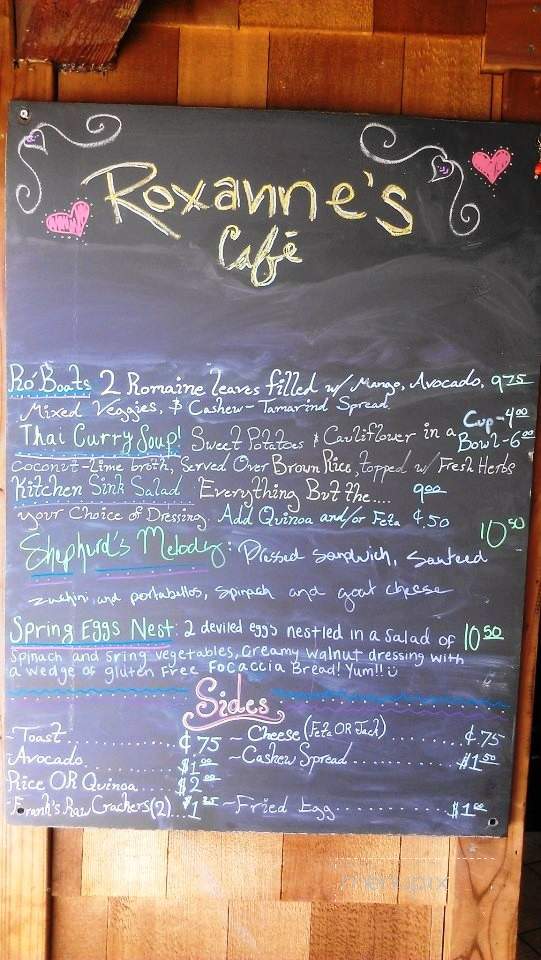 Roxanne's
Café
Ro' Boats 2 Romaine leaves filled w/ Mango, Avocado, 9.75
Mixed Veggies, & Cashew-Tamarind Spread.
Cup-4.00
Thai Curry Soup! Sweet Potatoes & Cauliflower in a Bowl-6.00
coconut-lime broth, Served Over Brown Rice, topped w/ Fresh Herbs
Kitchen Sink Salad "Everything But the.... 9.00
your Choice of Dressing Add Quinoa and/or Feta ¢.50
Shepherd's Melody: Pressed sandwich, Sauteed 10.50
zuchini, and portabellos, spinach and goat cheese
Spring Eggs Nest: 2 deviled eggs nestled in a salad of 10.50
spinach and sring vegetables, Creamy walnut dressing with
a wedge of gluten free Focaccia Bread! Yum!!
Sides
~Toast..........¢.75 ~Cheese (Feta OR Jack)..........¢.75
~Avocado..........$1.00 ~Cashew Spread..........$1.50
Rice OR Quinoa....$2.00
~Frank's Raw Crackers(2)...$1.25 ~Fried Egg..........$1.00
menupix